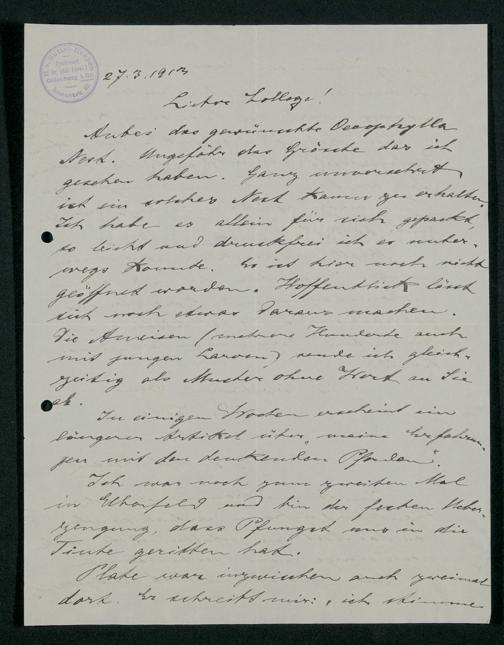 H. v. Buttel-Reepen
27.3.1913
Lieber Kollege!
Anbei das gewünschte Oecophylla
Nest. Ungefähr das Grösste das ich
gesehen haben. Ganz unversehrt
ist ein solches Nest kaum zu erhalten.
Ich habe es allein für sich gepackt,
so leicht und druckfrei ich es unter-
wegs konnte. Es ist hier noch nicht
geöffnet worden. Hoffentlich lässt
sich noch etwas daraus machen.
Die Ameisen (mehrere Hunderte auch
mit jungen Larven) sende ich gleich-
zeitig als Muster ohne Wert an Sie
ab.
In einigen Wochen erscheint ein
längerer Artikel über "meine Erfahrun-
gen mit den denkenden Pferden".
Ich war noch zum zweiten Mal
in Elberfeld und bin der festen Ueber-
zeugung, dass Pfungst uns in die
Tinte geritten hat.
Plate war inzwischen auch zweimal
dort. Er schreibt mir: "ich stimme